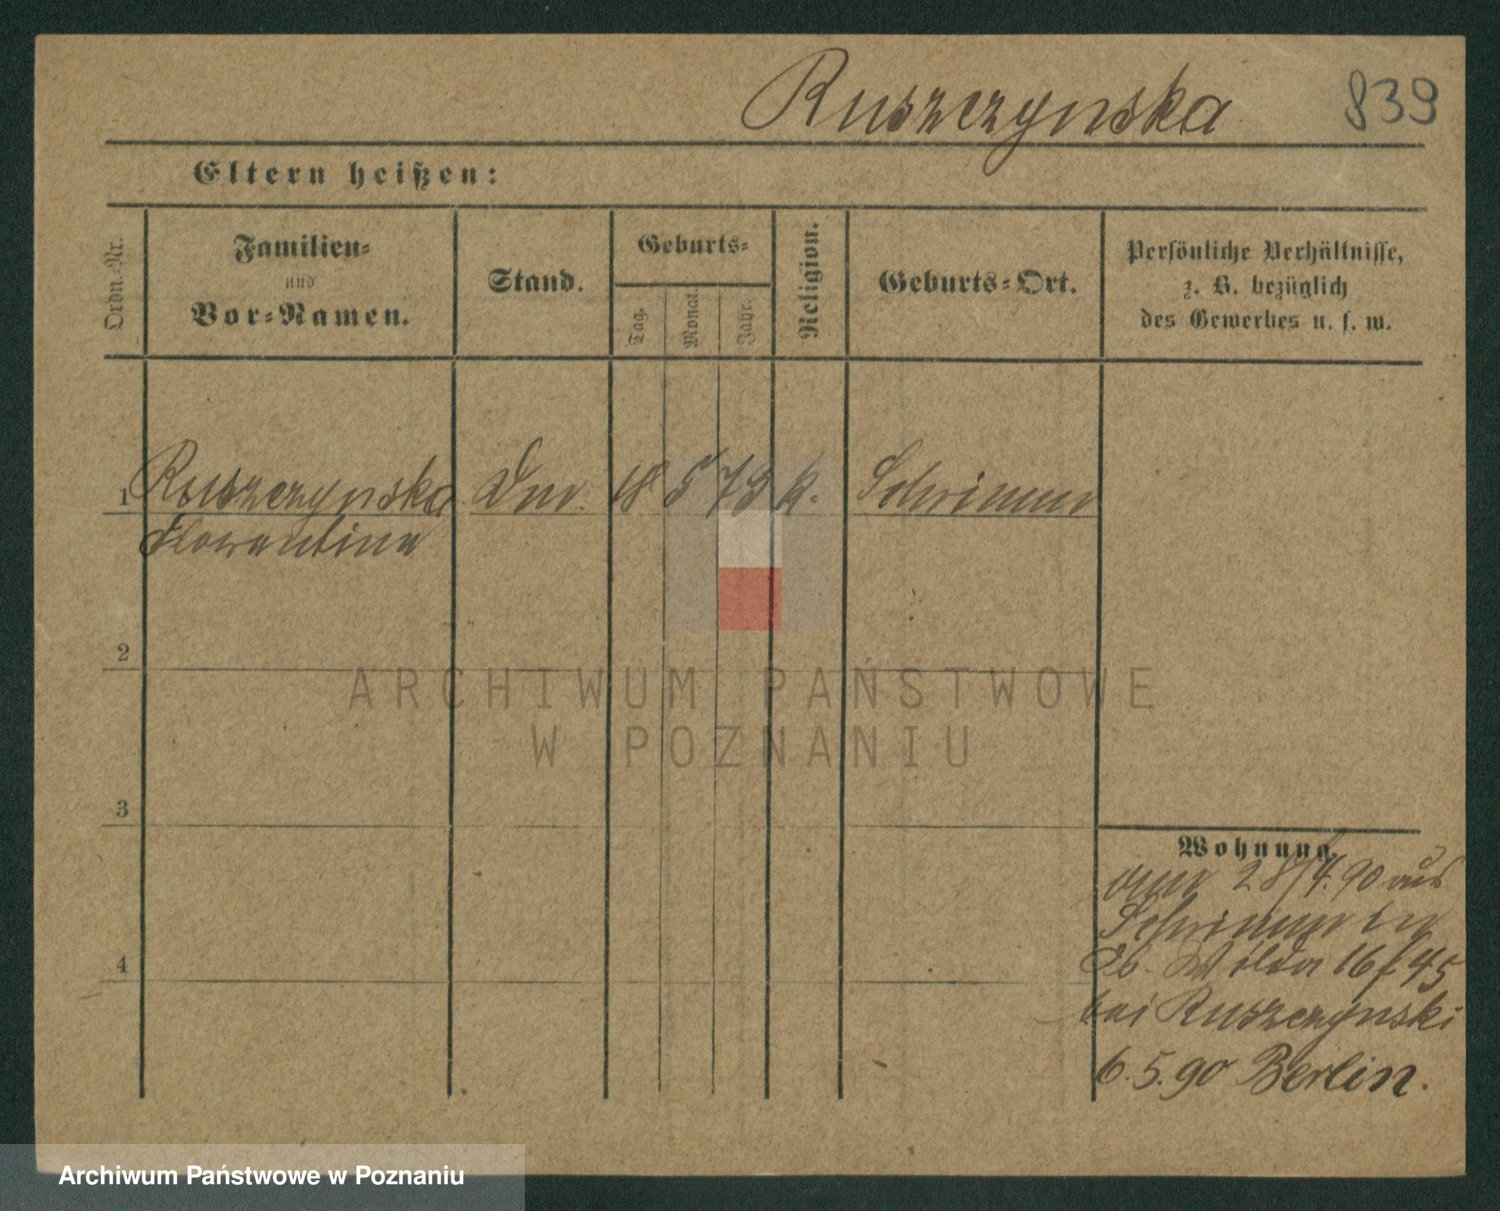 Ruszczynska 839
Eltern heißen:
Ordn.-Nr.
Familien-
und
Vor-Namen.
Stand.
Geburts-
Tag.
Monat.
Jahr.
Religion.
Geburts-Ort.
Persönliche Verhältnisse,
z. B. bezüglich
des Gewerbes u. s. w.
1 Ruszczynska 18 5 72 k. Schrimm
Florentine
2
ARCHIWUM PAŃSTWOWE
W POZNANIU
3
4
Wohnung.
28/4.90 aus
Schrimm in
Ob. Wilda 16 f 45
bei Ruszczynski
6.5.90 Berlin.
Archiwum Państwowe w Poznaniu